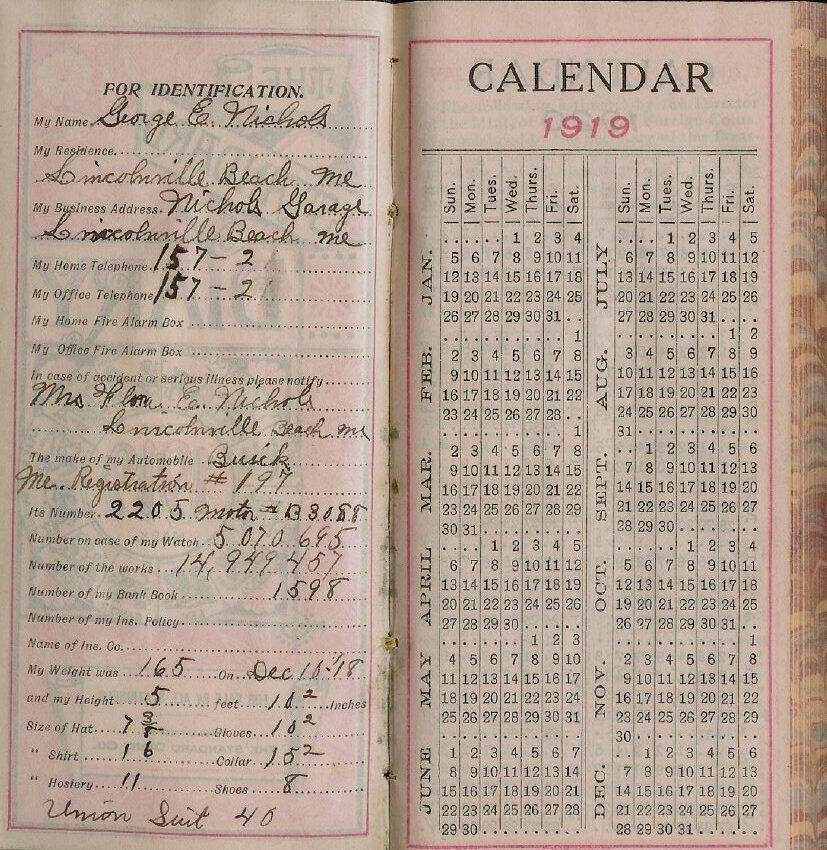 FOR IDENTIFICATION.
My Name George E. Nichols
My Residence
Lincolnville Beach Me
My Business Address. Nichols Garage
Lincolnville Beach me
My Home Telephone 157-2
My Office Telephone 157-2
My Home Fire Alarm Box
My Office Fire Alarm Box
In case of accident or serious illness please notify
Mrs E. Nichols
Lincolnville Beach me
The make of my Automobile Buick
Me. Registration # 197
Its Number. 2205 Motor # B3088
Number on case of my Watch 5 070 695
Number of the works 14,949 457
Number of my Bank Book 1598
Number of my Ins. Policy
Name of Ins. Co.
My Weight was 165 On Dec 10 '18
and my Height 5 feet 10 2 Inches
Size of Hat 7 3/8 Gloves 10 2
" Shirt 16 Collar 15 2
" Hosiery 11 Shoes 8
Union Suit 40
CALENDAR
1919
Sun. Mon. Tues. Wed. Thurs. Fri. Sat.
JAN.
1 2 3 4
5 6 7 8 9 10 11
12 13 14 15 16 17 18
19 20 21 22 23 24 25
26 27 28 29 30 31
FEB.
1
2 3 4 5 6 7 8
9 10 11 12 13 14 15
16 17 18 19 20 21 22
23 24 25 26 27 28
MAR.
1
2 3 4 5 6 7 8
9 10 11 12 13 14 15
16 17 18 19 20 21 22
23 24 25 26 27 28 29
30 31
APRIL
1 2 3 4 5
6 7 8 9 10 11 12
13 14 15 16 17 18 19
20 21 22 23 24 25 26
27 28 29 30
MAY
1 2 3
4 5 6 7 8 9 10
11 12 13 14 15 16 17
18 19 20 21 22 23 24
25 26 27 28 29 30 31
JUNE
1 2 3 4 5 6 7
8 9 10 11 12 13 14
15 16 17 18 19 20 21
22 23 24 25 26 27 28
29 30
Sun. Mon. Tues. Wed. Thurs. Fri. Sat.
JULY
1 2 3 4 5
6 7 8 9 10 11 12
13 14 15 16 17 18 19
20 21 22 23 24 25 26
27 28 29 30 31
AUG.
1 2
3 4 5 6 7 8 9
10 11 12 13 14 15 16
17 18 19 20 21 22 23
24 25 26 27 28 29 30
31
SEPT.
1 2 3 4 5 6
7 8 9 10 11 12 13
14 15 16 17 18 19 20
21 22 23 24 25 26 27
28 29 30
OCT.
1 2 3 4
5 6 7 8 9 10 11
12 13 14 15 16 17 18
19 20 21 22 23 24 25
26 27 28 29 30 31
NOV.
1
2 3 4 5 6 7 8
9 10 11 12 13 14 15
16 17 18 19 20 21 22
23 24 25 26 27 28 29
30
DEC.
1 2 3 4 5 6
7 8 9 10 11 12 13
14 15 16 17 18 19 20
21 22 23 24 25 26 27
28 29 30 31